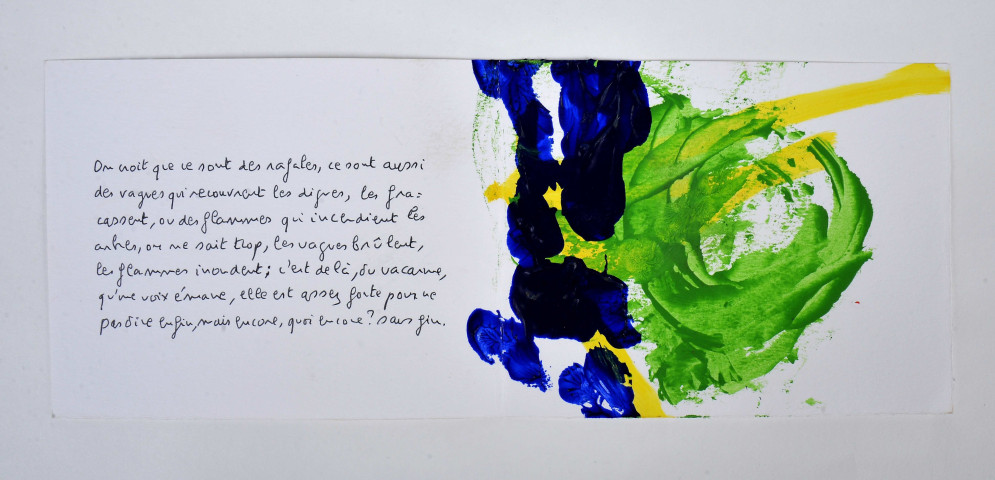 On croit que ce sont des rafales, ce sont aussi
des vagues qui recouvrent les digues, les fra=
cassent, ou des flammes qui incendient les
arbres, on ne sait trop, les vagues brûlent,
les flammes inondent ; c'est de là, du vacarme,
qu'une voix émane, elle est assez forte pour ne
pas dire enfin, mais encore, quoi encore ? sans fin.